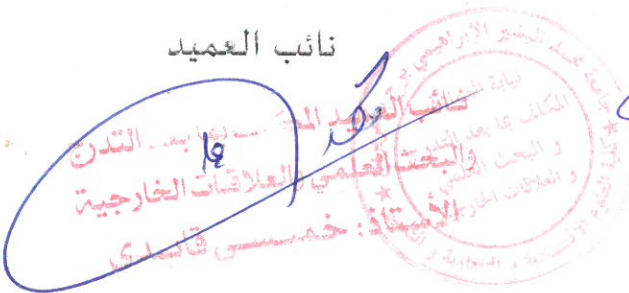 نائب العميد
نائب العميد المكلف بما بعد التدرج
والبحث العلمي والعلاقات الخارجية
الأستاذ: خميسي قايدي
جامعة محمد البشير الإبراهيمي
المكلف بما بعد التدرج
و البحث العلمي
و العلاقات الخارجية